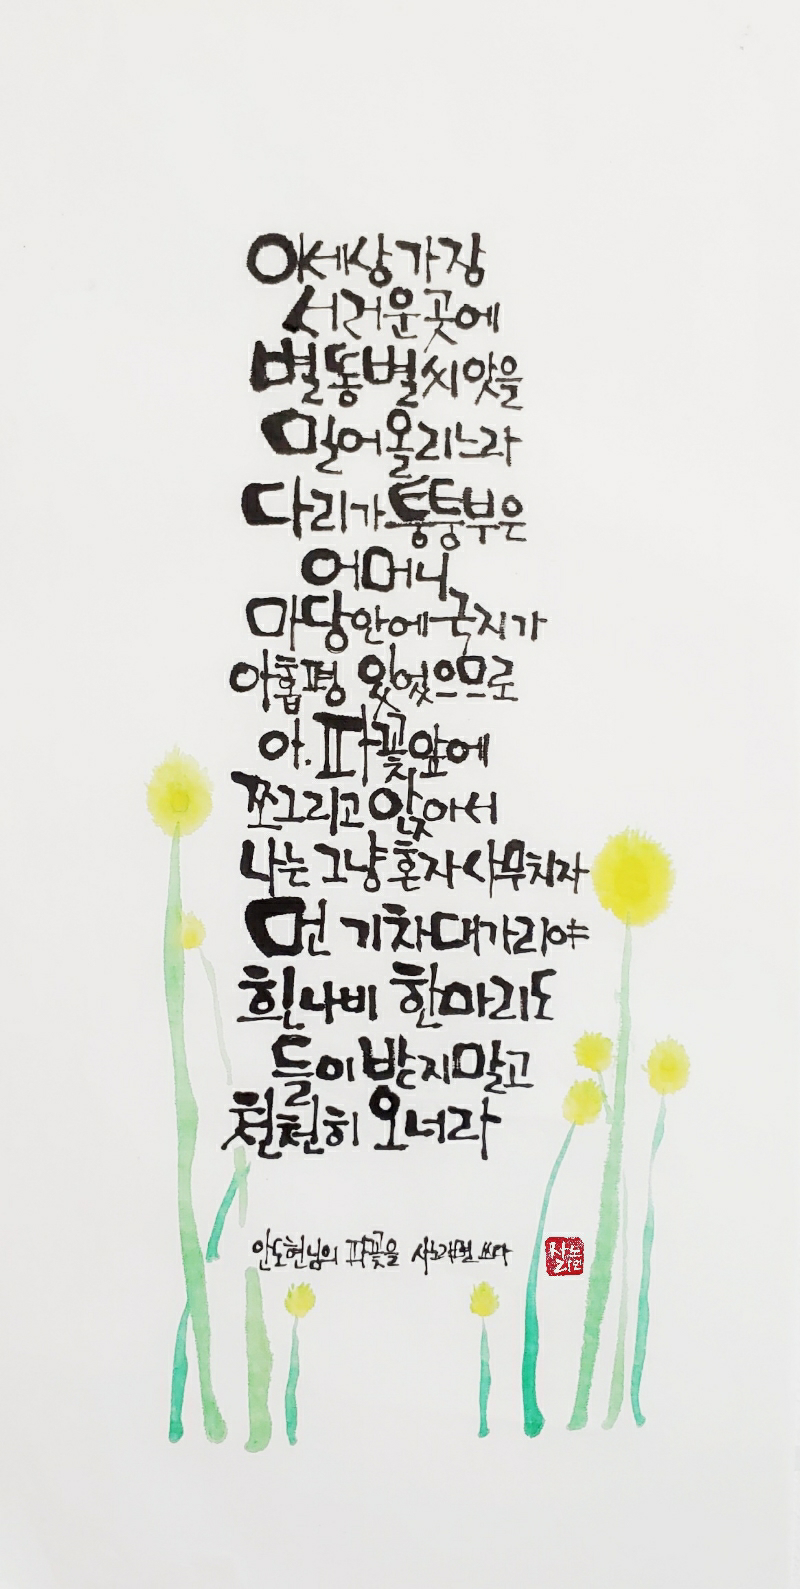 이 세상 가장
서러운 곳에
별똥별 씨앗을
밀어올리느라
다리가 퉁퉁 부은
어머니
마당 안에 극지가
아홉 평 있었으므로
아, 파꽃 앞에
쪼그리고 앉아서
나는 그냥 혼자 사무치자
먼 기차 대가리야
흰나비 한 마리도
들이받지 말고
천천히 오너라
안도현님의 파꽃을 사노라면 쓰다
사노라면